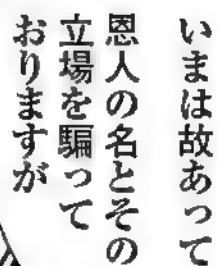 いまは故あって
恩人の名とその
立場を騙って
おりますが